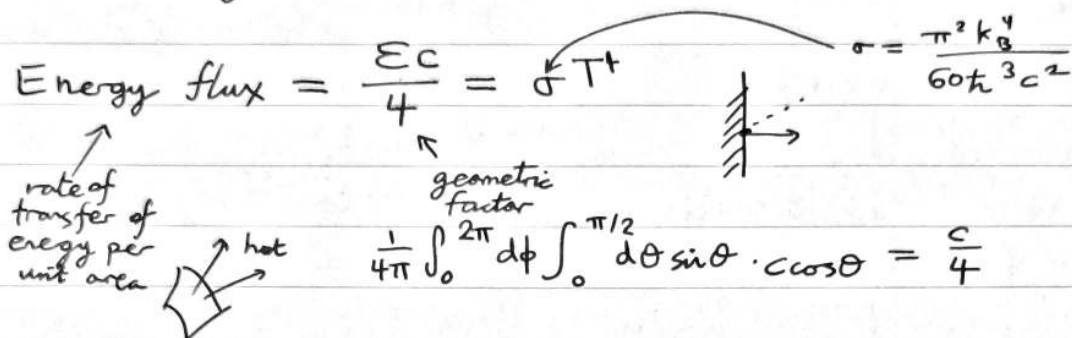 Energy flux = εc/4 = σT⁴
σ = π² k_B⁴ / 60ħ³c²
rate of
transfer of
enegy per
unit area
geometric
factor
hot
1/4π ∫₀^2π dφ ∫₀^π/2 dθ sinθ · c cosθ = c/4